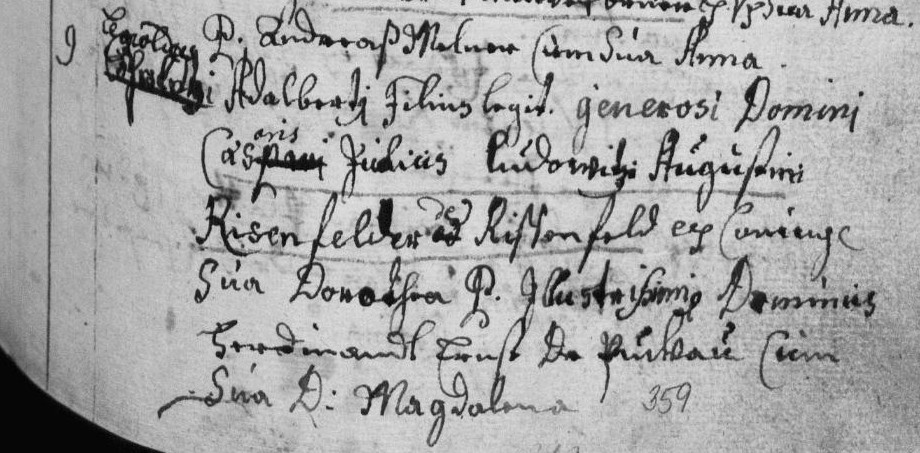 Uxor Sua Anma.
9 P. Andreaß Melner Cum Sua Anna.
Adalbertj Filius legit. generosi Domini
Casparis Julius Ludowitzi Augustini
Risenfelder de Rissenfeld ex Coniuge
Sua Dorothea P. Illustrissimus Dominus
Ferdinandt Ernst De Pukau Cum
Sua D: Magdalena 359